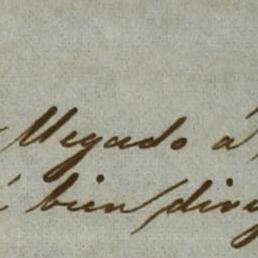 llegado á
bien